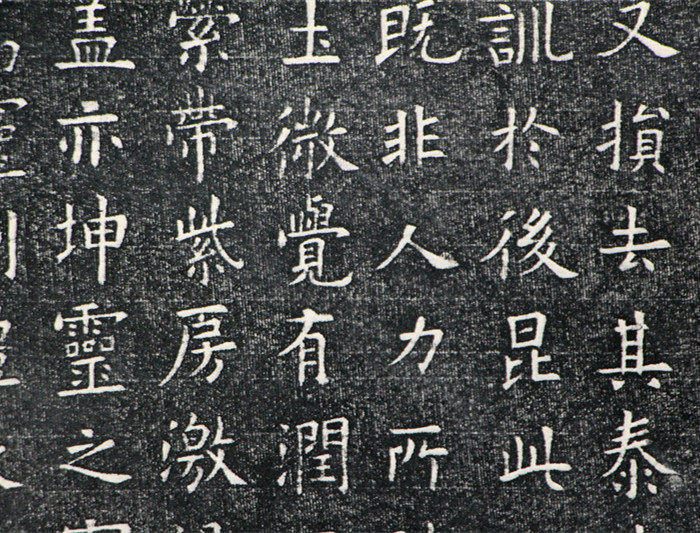 又損去其泰
訓於後昆此
既非人力所
土微覺有潤
縈帶紫房激
盖亦坤靈之